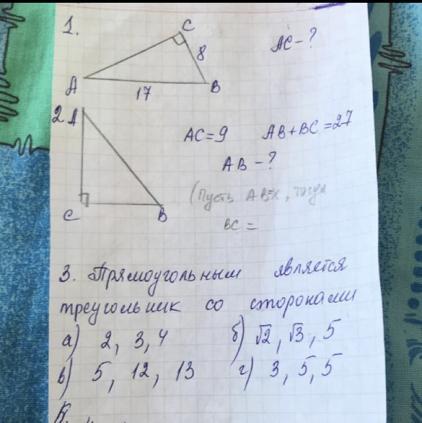 1.
C
8
AC - ?
A
17
B
2
A
AC = 9 AB + BC = 27
AB - ?
(Пусть AB = x, тогда
BC =
C
B
3. Прямоугольным является
треугольник со сторонами
а) 2, 3, 4 б) √2, √3, 5
в) 5, 12, 13 г) 3, 5, 5